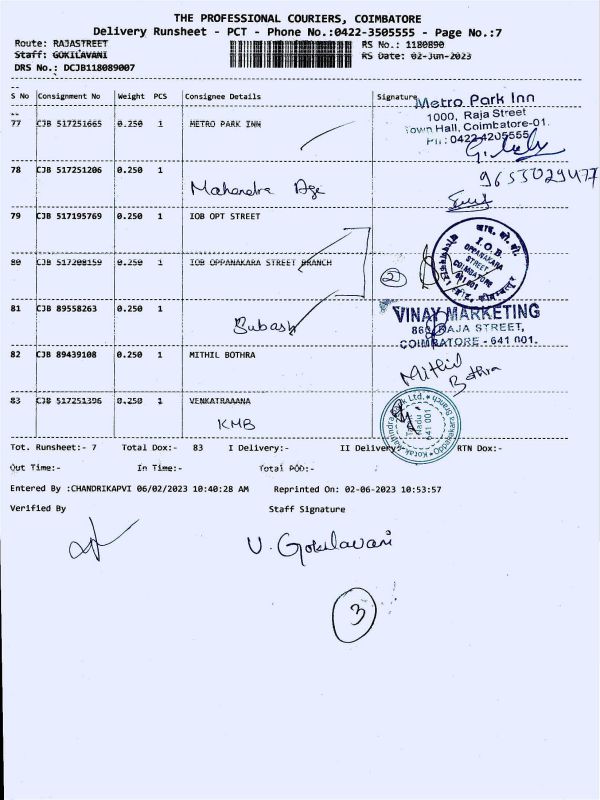 THE PROFESSIONAL COURIERS, COIMBATORE
Delivery Runsheet - PCT - Phone No.:0422-3505555 - Page No.:7
Route: RAJASTREET RS No.: 1180890
Staff: GOKILAVANI RS Date: 02-Jun-2023
DRS No.: DCJB118089007
S No Consignment No Weight PCS Consignee Details Signature
Metro Park Inn
1000, Raja Street
Town Hall, Coimbatore-01.
Ph: 0422 4205555
77 CJB 517251665 0.250 1 METRO PARK INN
78 CJB 517251206 0.250 1
Mahendra Age 9655029477
79 CJB 517195769 0.250 1 IOB OPT STREET
I.O.B.
OPPANAKARA
STREET
COIMBATORE
641 001
80 CJB 517208159 0.250 1 IOB OPPANAKARA STREET BRANCH
2
81 CJB 89558263 0.250 1
Subash
VINAY MARKETING
RAJA STREET,
COIMBATORE - 641 001.
82 CJB 89439108 0.250 1 MITHIL BOTHRA
Mithil
Bothra
83 CJB 517251396 0.250 1 VENKATRAAANA
KMB
Kotak Mahindra Bank Ltd. Oppanakara Branch
641 001
Tot. Runsheet:- 7 Total Dox:- 83 I Delivery:- II Delivery:- RTN Dox:-
Out Time:- In Time:- Total POD:-
Entered By :CHANDRIKAPVI 06/02/2023 10:40:28 AM Reprinted On: 02-06-2023 10:53:57
Verified By Staff Signature
V. Gokilavani
3